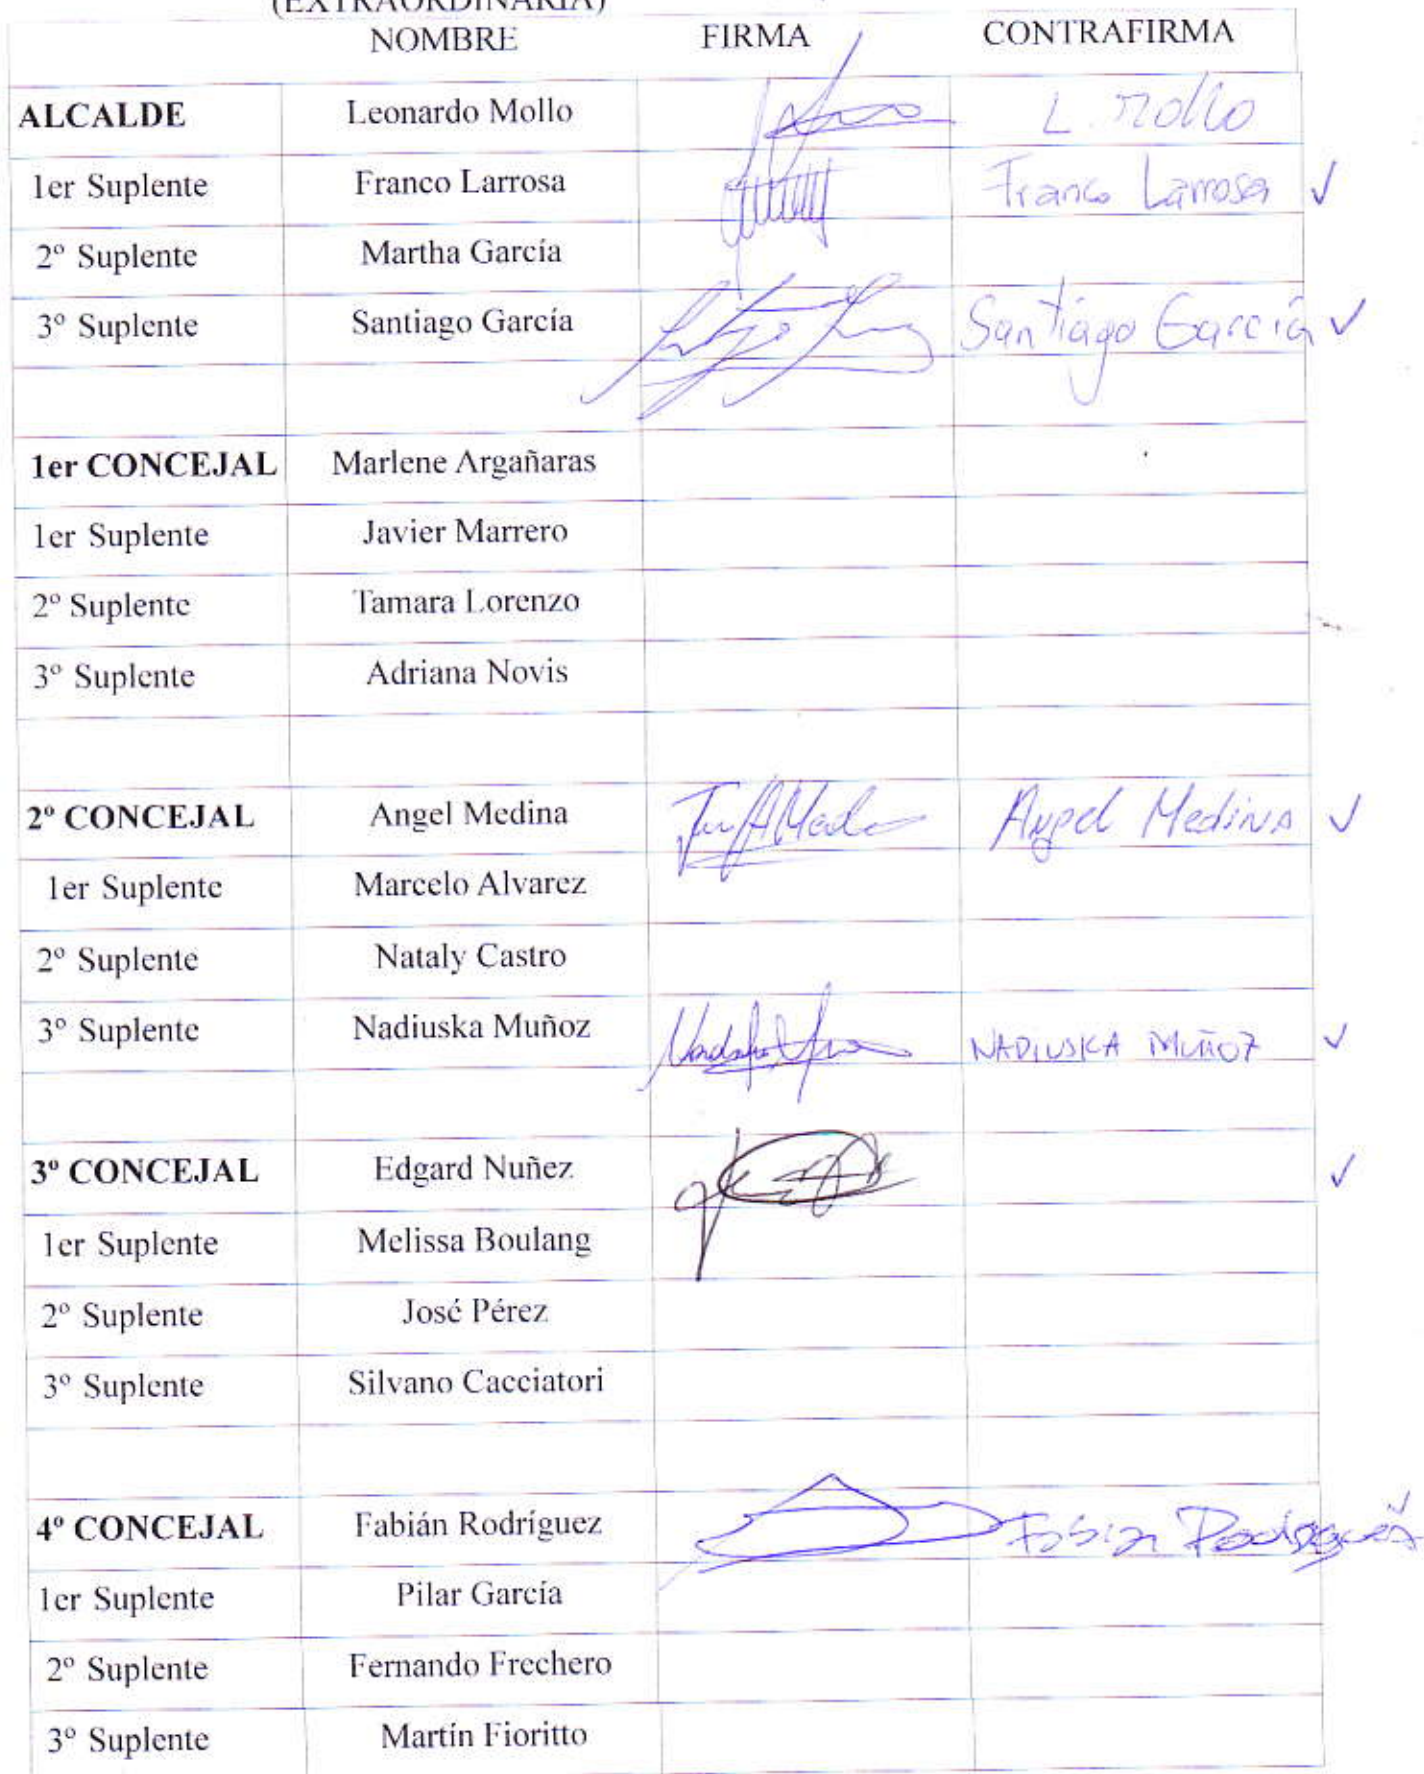 (EXTRAORDINARIA)
NOMBRE FIRMA CONTRAFIRMA
ALCALDE Leonardo Mollo L. Mollo
1er Suplente Franco Larrosa Franco Larrosa ✓
2º Suplente Martha García
3º Suplente Santiago García Santiago García ✓
1er CONCEJAL Marlene Argañaras
1er Suplente Javier Marrero
2º Suplente Tamara Lorenzo
3º Suplente Adriana Novis
2º CONCEJAL Angel Medina Angel Medina ✓
1er Suplente Marcelo Alvarez
2º Suplente Nataly Castro
3º Suplente Nadiuska Muñoz NADIUSKA MUÑOZ ✓
3º CONCEJAL Edgard Nuñez ✓
1er Suplente Melissa Boulang
2º Suplente José Pérez
3º Suplente Silvano Cacciatori
4º CONCEJAL Fabián Rodríguez Fabian Rodríguez ✓
1er Suplente Pilar García
2º Suplente Fernando Frechero
3º Suplente Martín Fioritto